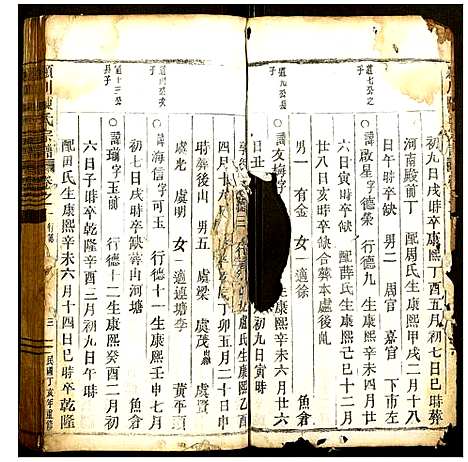 初九日戌時卒康熙丁酉五月初七日巳時葬
河南殿前丁 配周氏生康熙甲戌二月十八
日午時卒缺 男二 周官 嘉官 下市左
道七公之子
諱啟星字德榮 行德九 生康熙
六日寅時卒缺 配薛氏生康熙十二月
廿八日亥時卒缺合葬本處後亂
男一 有金 女一適徐 魚倉
道九公長子
諱友 字
生康熙辛未六月廿六
日丑 初九日寅時
盧氏生康熙乙酉
四月十六 丁卯五月二十日
時葬後山 男五 虞梁 虞茂 虞賢
虞光 虞明 女一適連塘李 黃平頭
道十三公長子
諱海信字可玉 行德十一生康熙壬申七月
初七日戌時卒缺葬山河塘 魚倉
諱瑞字玉前 行德十二生康熙癸酉二月初
六日子時卒乾隆辛酉三月初九日午時
配田氏生康熙辛未六月十四日巳時卒乾隆
潁川陳氏宗譜 卷之一 行第 三 民國丁亥年重修